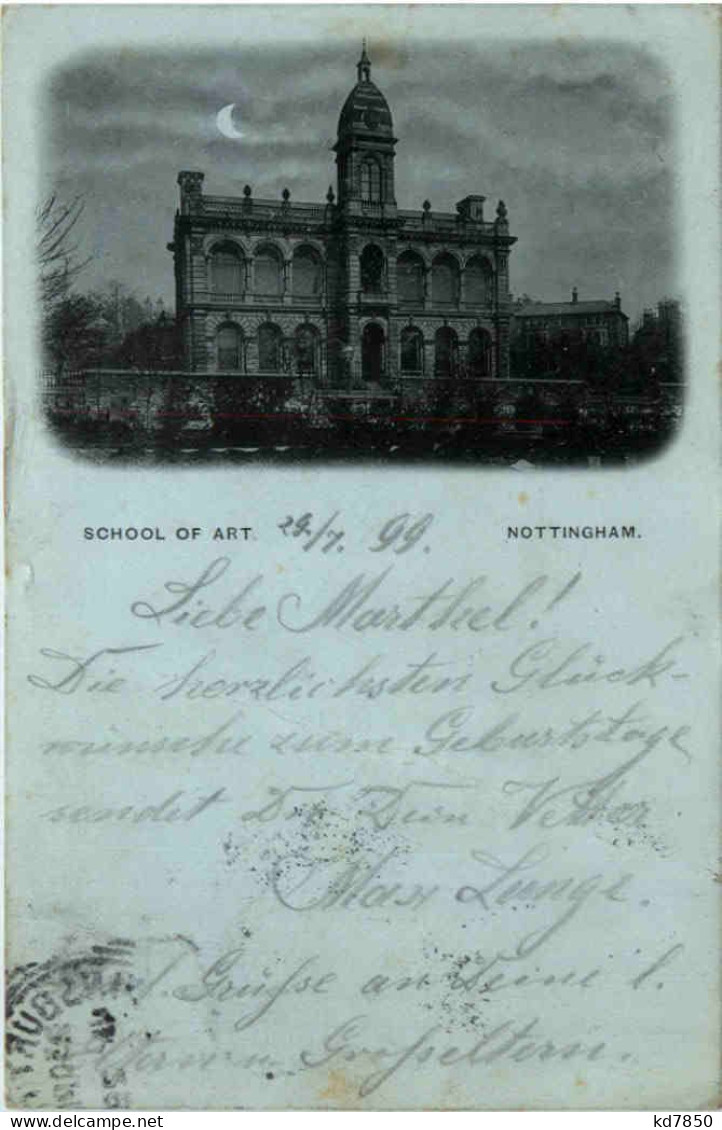 SCHOOL OF ART. 29./7. 99. NOTTINGHAM.
Liebe Marthel!
Die herzlichsten Glück-
wünsche zum Geburtstage
sendet Dir Dein Vetter
Max Lange.
Grüße an Deine l.
Eltern u. Großeltern.
kd7850